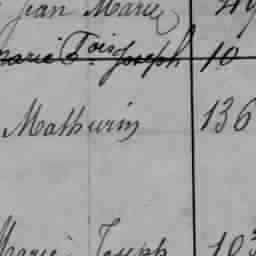 Jean Marie 49
Marie Fois Joseph 10
Mathurin 136
Marie Joseph 103